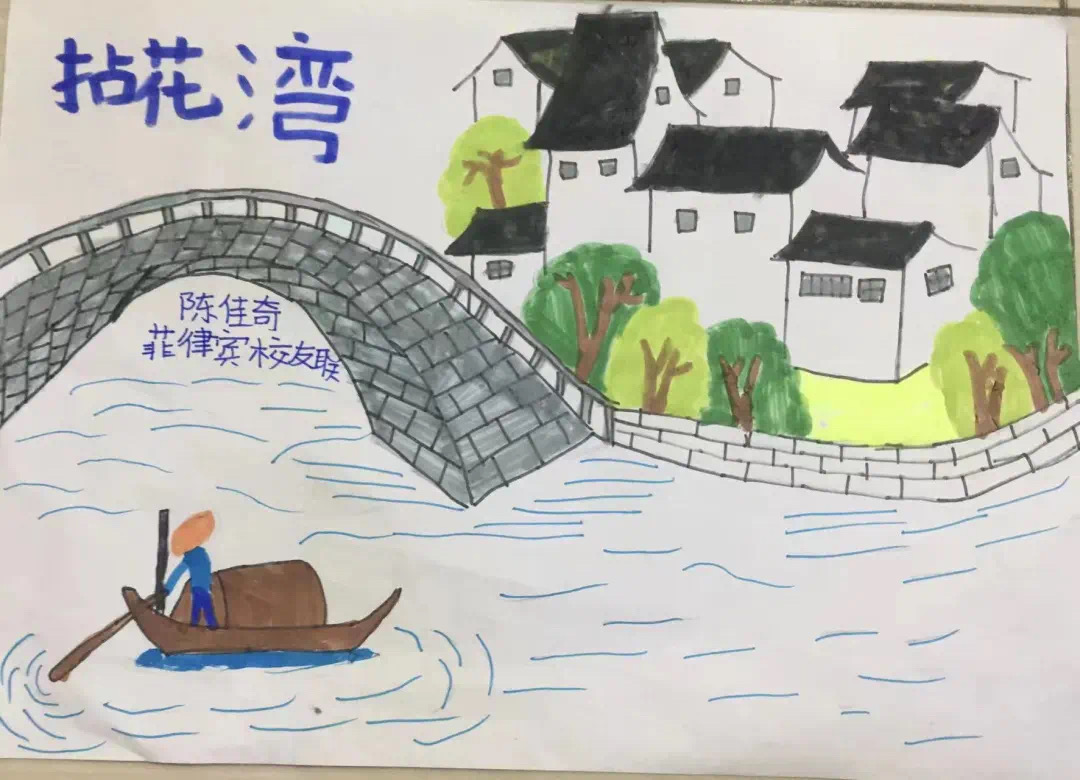 拈花湾
陈佳奇
菲律宾校友联